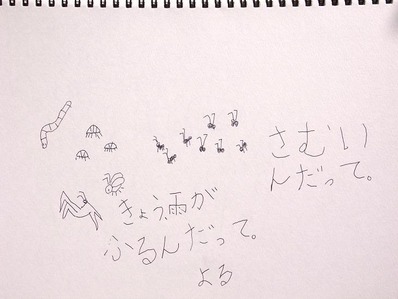 さむい
んだって。
きょう雨が
ふるんだって。
よる